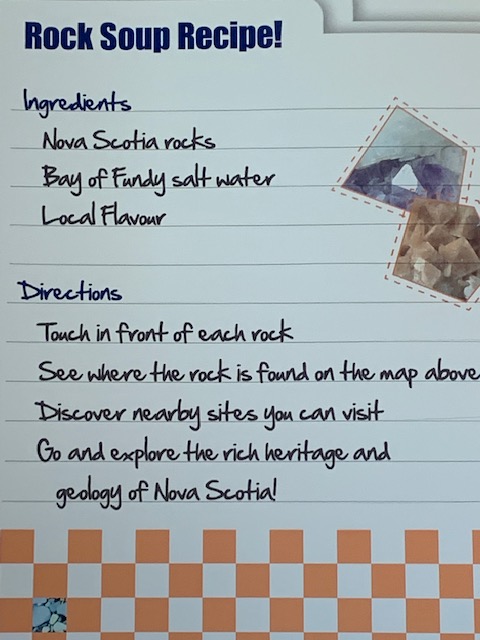 Rock Soup Recipe!
Ingredients
Nova Scotia rocks
Bay of Fundy salt water
Local Flavour
Directions
Touch in front of each rock
See where the rock is found on the map above
Discover nearby sites you can visit
Go and explore the rich heritage and
geology of Nova Scotia!